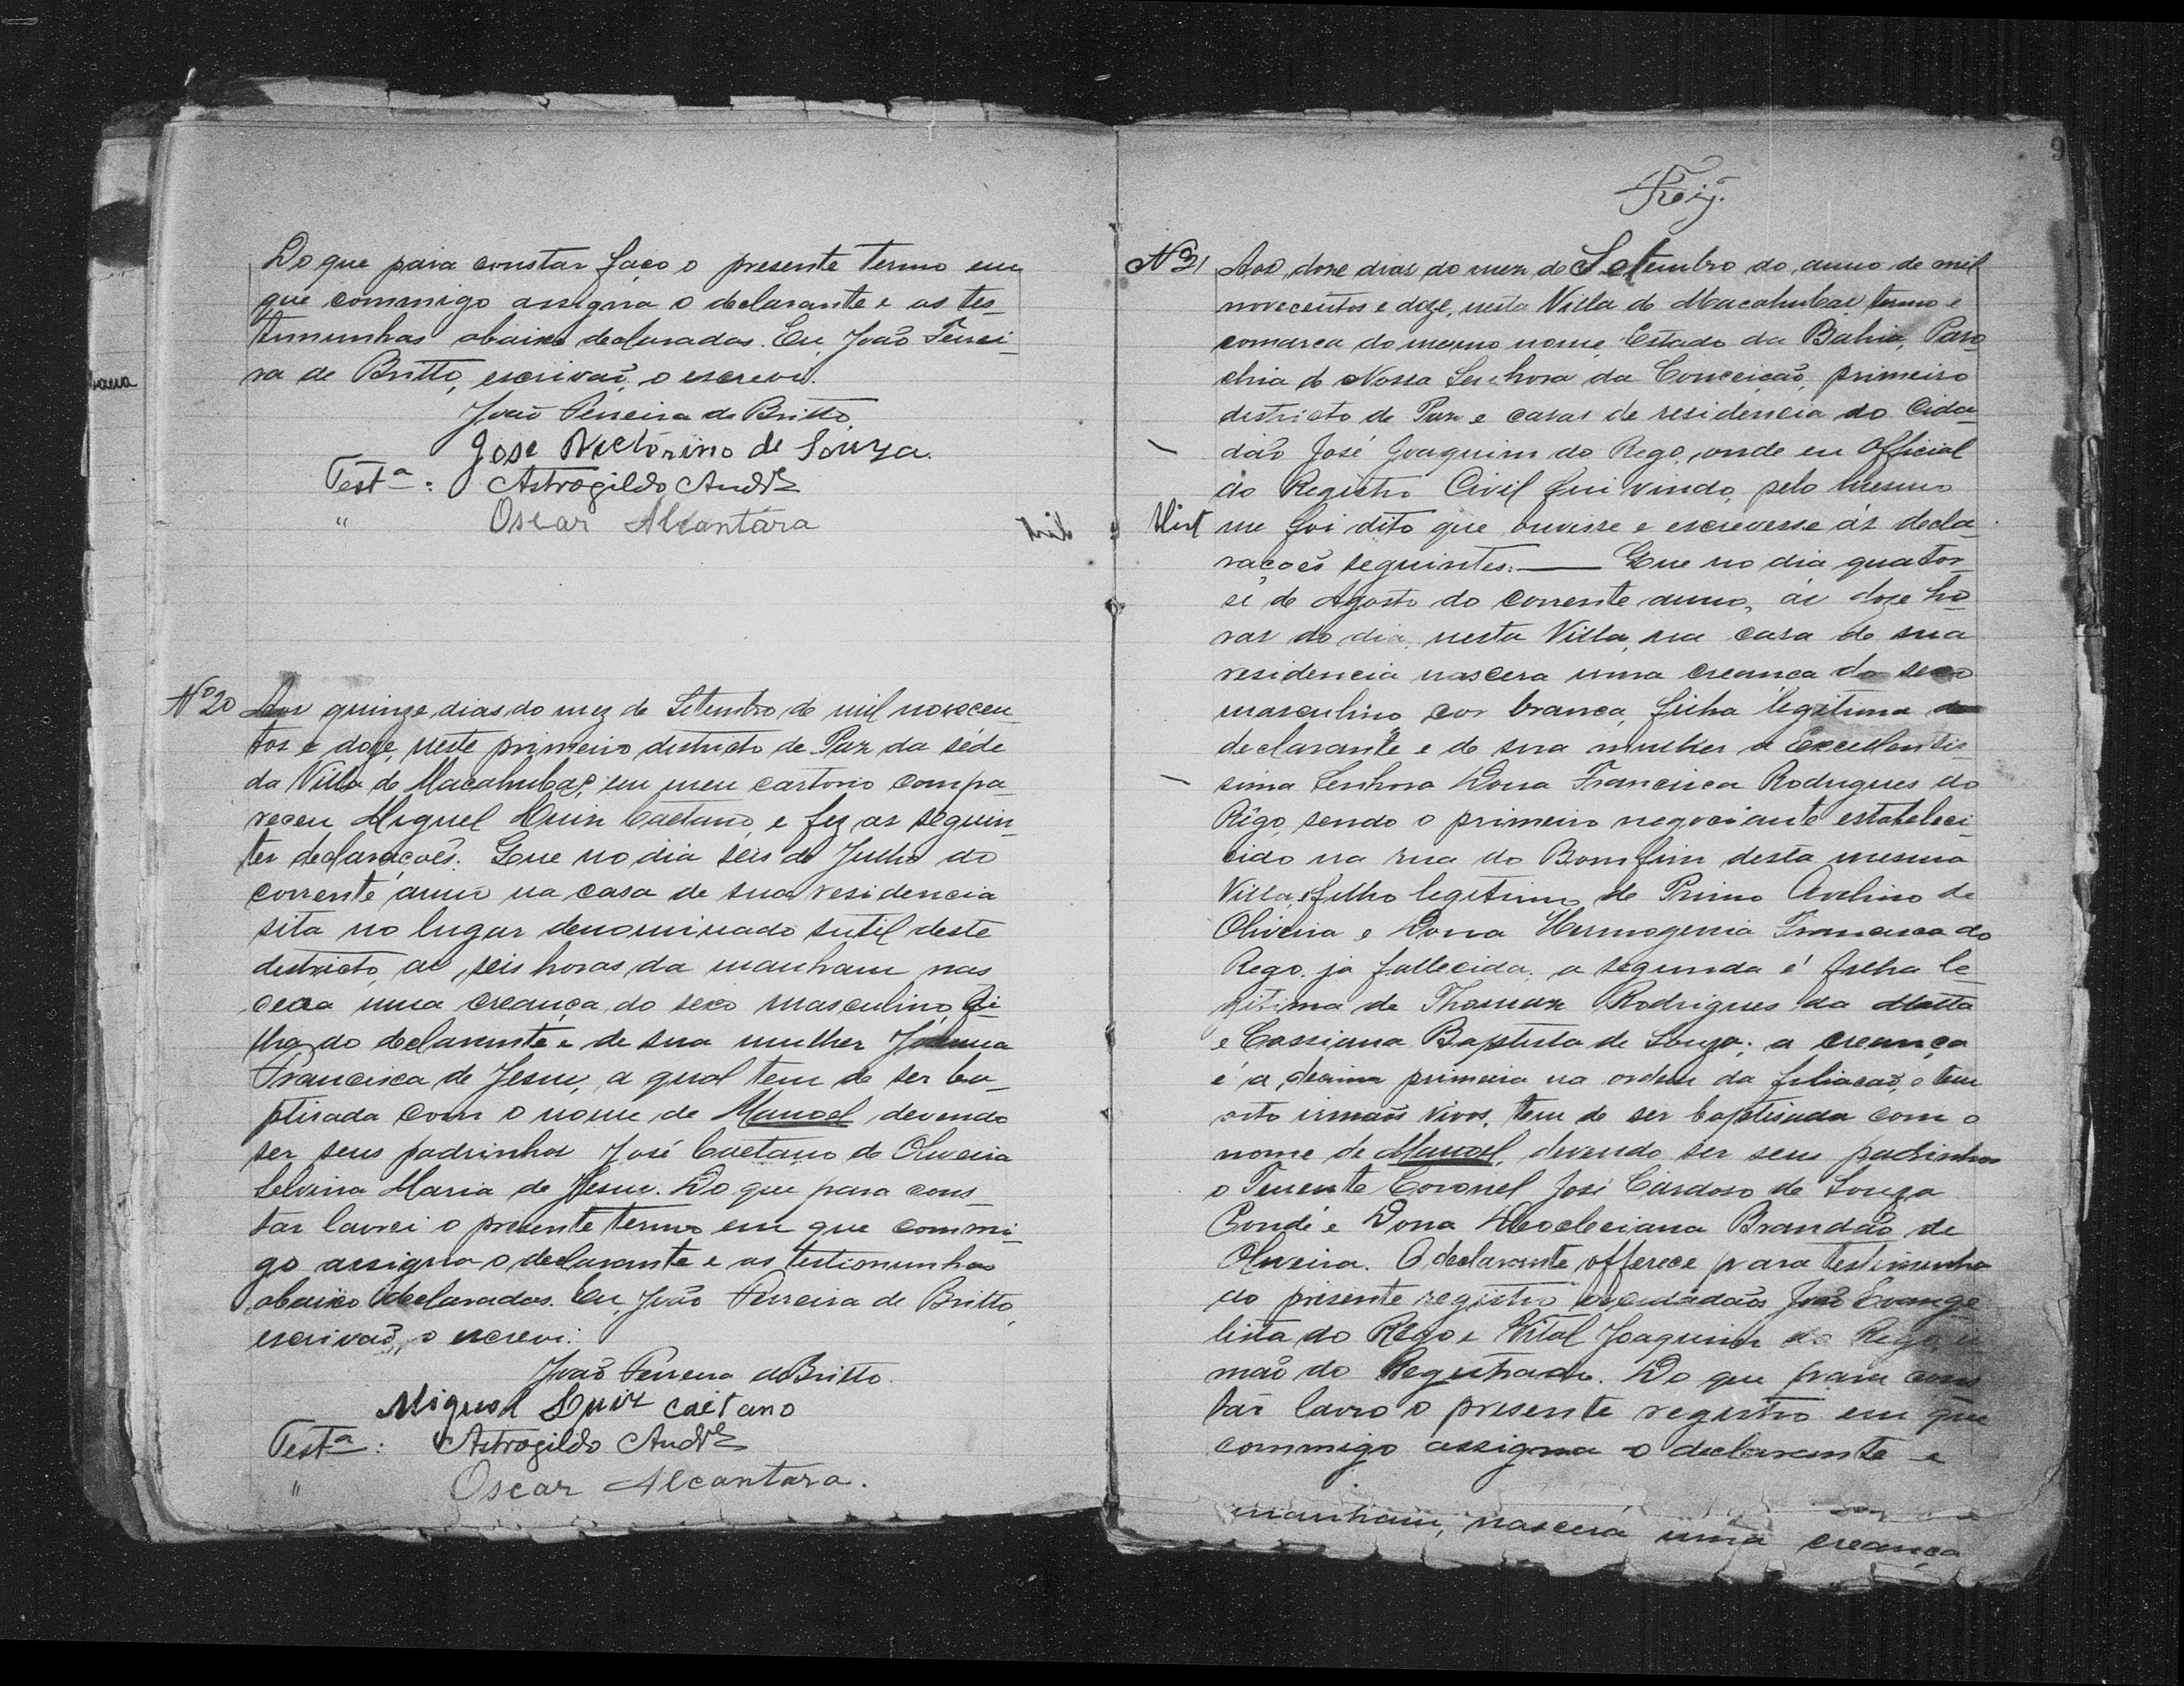 Do que para constar faço o presente termo em
que commigo assigna o declarante e as tes-
temunhas abaixo declaradas. Eu, João Ferrei-
ra de Britto, escrivão, o escrevi.
João Ferreira de Britto.
Jose Victorino de Souza.
Testª: Astrogildo Andre
" Oscar Alcantara
Nº 20 Aos quinze dias do mez de Setembro de mil novecen-
tos e doze, neste primeiro districto de Paz da séde
da Villa de Macahubas, em meu cartorio compa-
receu Miguel Luiz Caetano, e fez as seguin-
tes declarações. Que no dia seis de Julho do
corrente anno na casa de sua residencia
sita no lugar denominado Sutil deste
districto, as seis horas da manham nas-
cera uma creança do sexo masculino, fi-
lha do declarante e de sua mulher
Francisca de Jesus, a qual tem de ser ba-
ptisada com o nome de Manoel devendo
ser seus padrinhos José Caetano de Oliveira
Selvina Maria de Jesus. Do que para cons-
tar lavrei o presente termo em que commi-
go assigna o declarante e as testimunhas
abaixo declaradas. Eu, João Ferreira de Britto,
escrivão, o escrevi.
João Ferreira de Britto.
Miguel Luiz Caetano
Testª: Astrogildo Andre
" Oscar Alcantara.
9
Nº 21 Aos doze dias do mez de Setembro do anno de mil
novecentos e doze, nesta Villa de Macahubas, termo e
comarca do mesmo nome, Estado da Bahia, Paro-
chia de Nossa Senhora da Conceição, primeiro
districto de Paz e casas de residencia do Cida-
dão José Joaquim do Rego, onde eu Official
do Registro Civil fui vindo, pelo mesmo
me foi dito que ouvisse e escrevesse ás decla-
rações seguintes: — Que no dia quator-
se de Agosto do corrente anno, ás doze ho-
ras do dia, nesta Villa, na casa de sua
residencia nascera uma creança do sexo
masculino cor branca, filha legitima do
declarante e de sua mulher a Excellentis-
sima Senhora Dona Francisca Rodrigues do
Rêgo, sendo o primeiro negociante estabeleci-
cido na rua do Bomfim desta mesma
Villa, filho legitimo de Primo Avelino de
Oliveira e Dona Hermogenia Francisca do
Rego, ja fallecida; a segunda é filha le-
gitima de Thomaz Rodrigues da Matta
e Cassiana Baptista de Souza; a creança
é a decima primeira na ordem da filiação, e tem
oito irmãos vivos, tem de ser baptisada com o
nome de Manoel, devendo ser seus padrinhos
o Tenente Coronel José Cardoso de Souza
Condé e Dona Deocleciana Brandão de
Oliveira. O declarante offerece para testimunha
do presente registro os cidadãos João Evange-
lista do Rêgo e Vital Joaquim do Rego, ir-
mão do Registrado. Do que para cons-
tar lavro o presente registro em que
commigo assigna o declarante e
manham, nascera uma creança